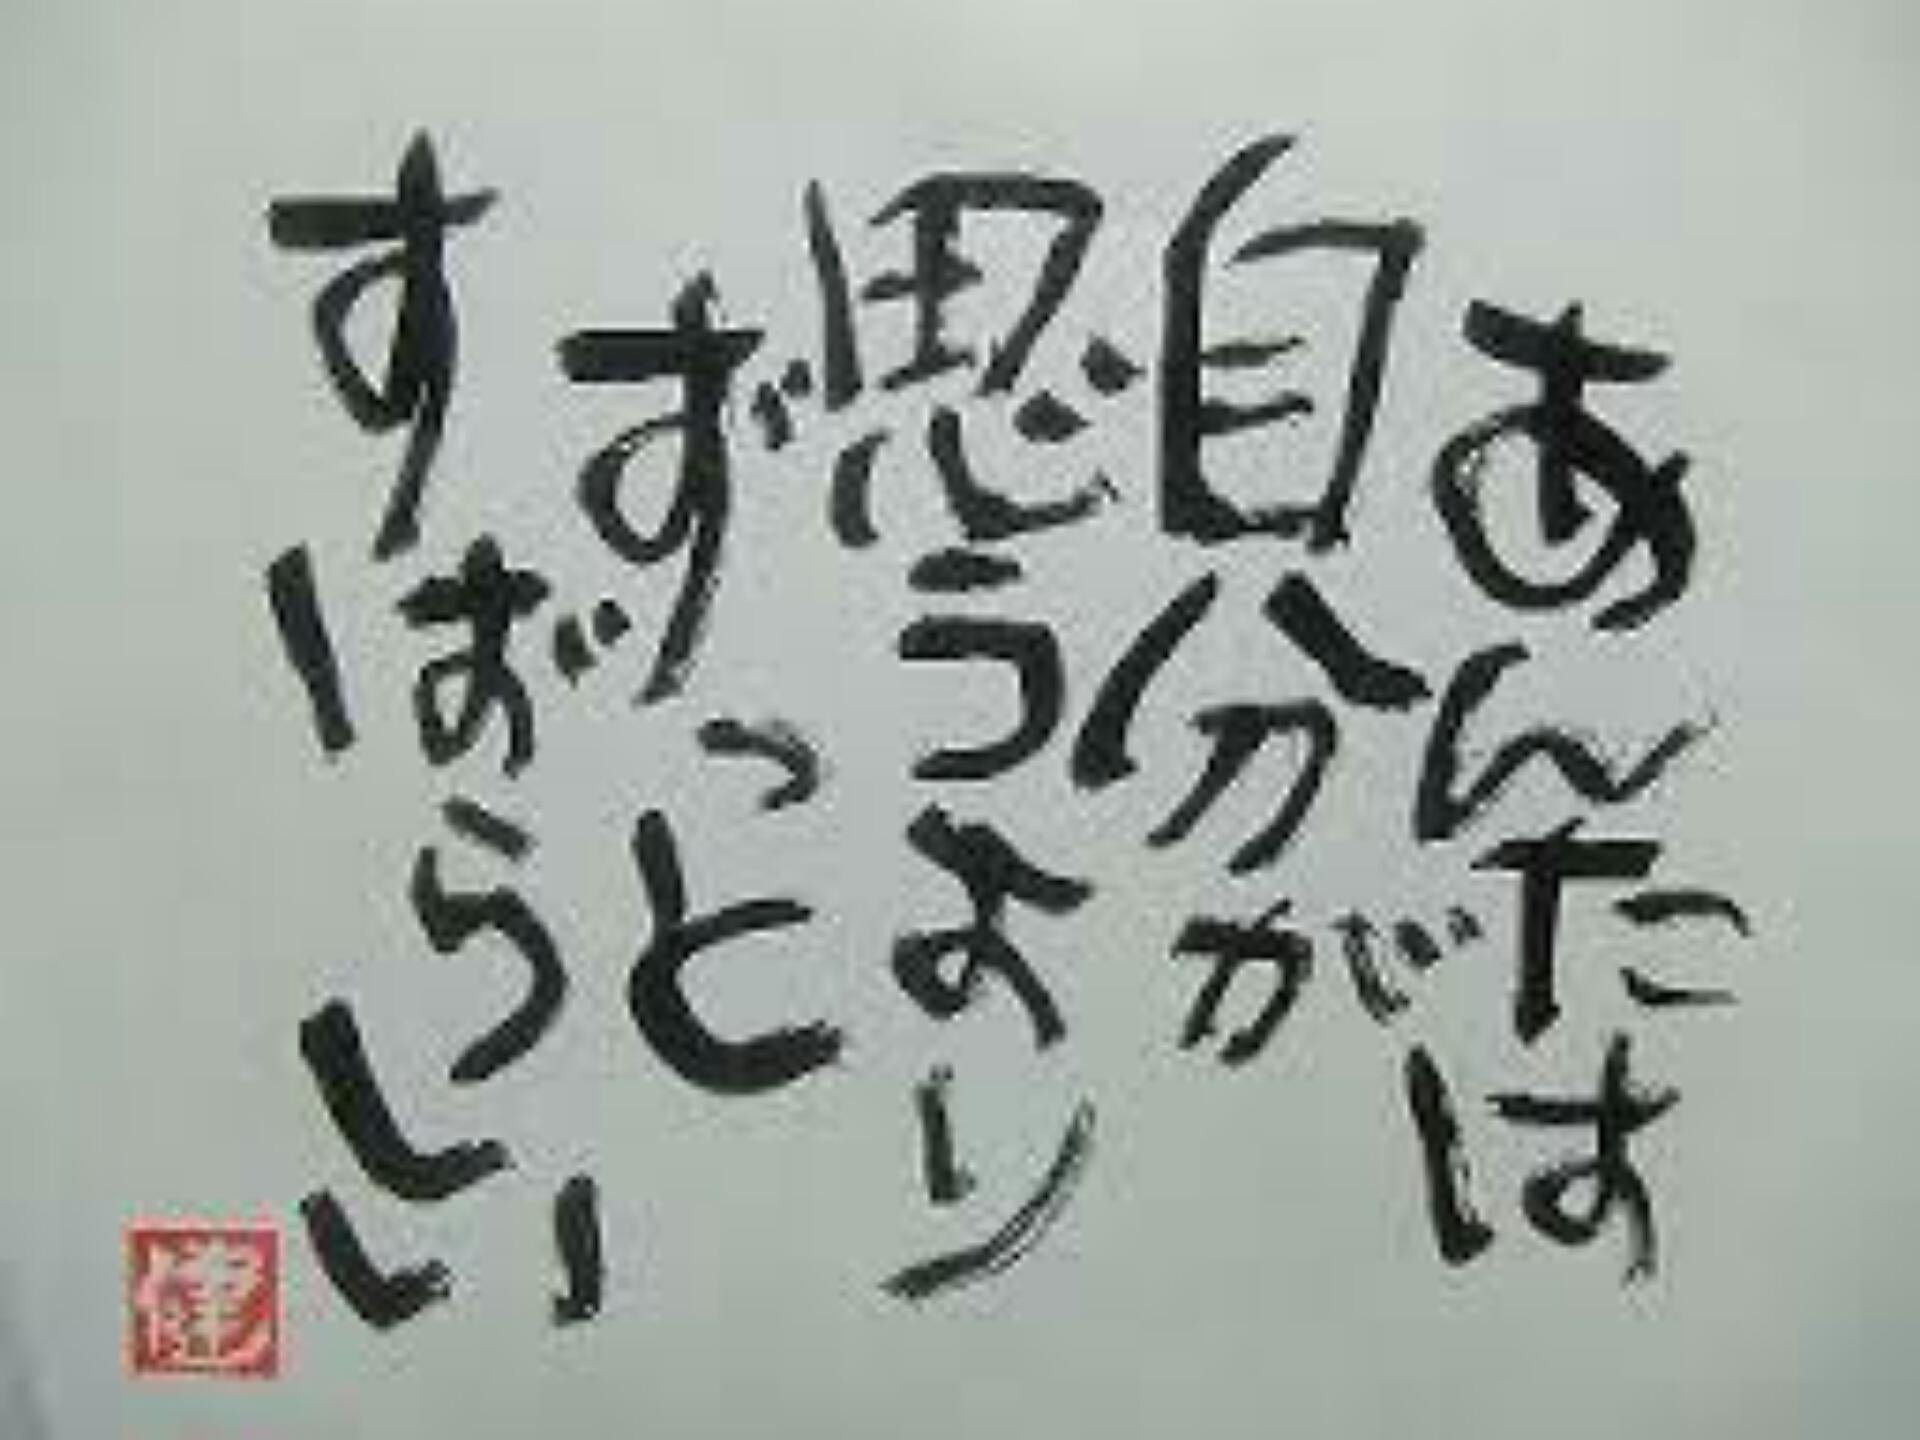 あんたは
自分が
思うより
ずっと
すばらしい